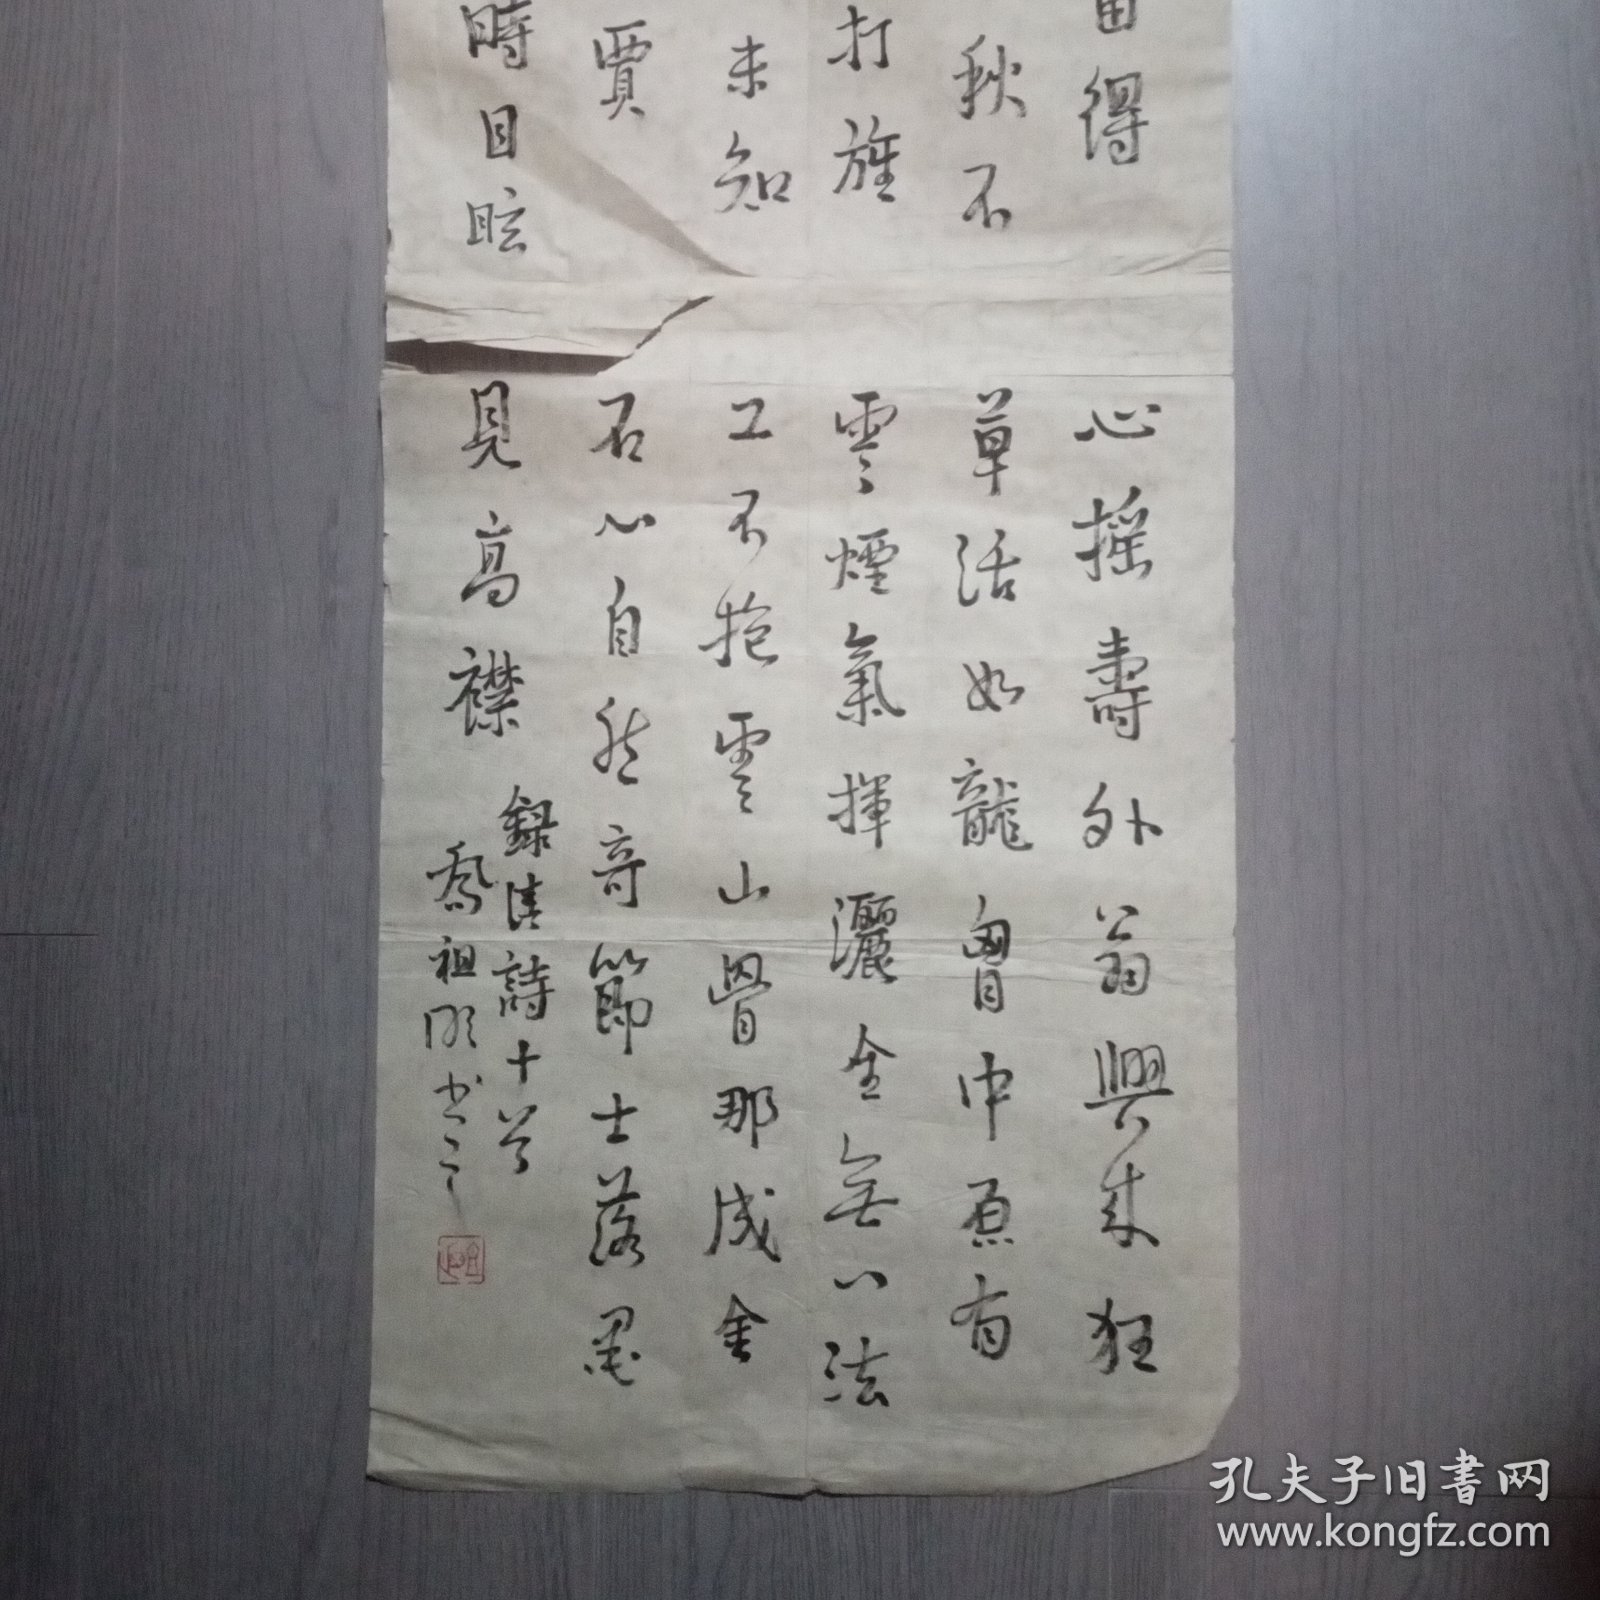 留得心摇壽外翁興来狂
秋不草活如龍胷中原有
打雲煙氣揮灑全無八法
未知工不抱雲山骨那成金
賈石心自然奇節士落墨
時目眩見高襟
録清詩十首
喬祖明书
孔夫子旧書网
www.kongfz.com